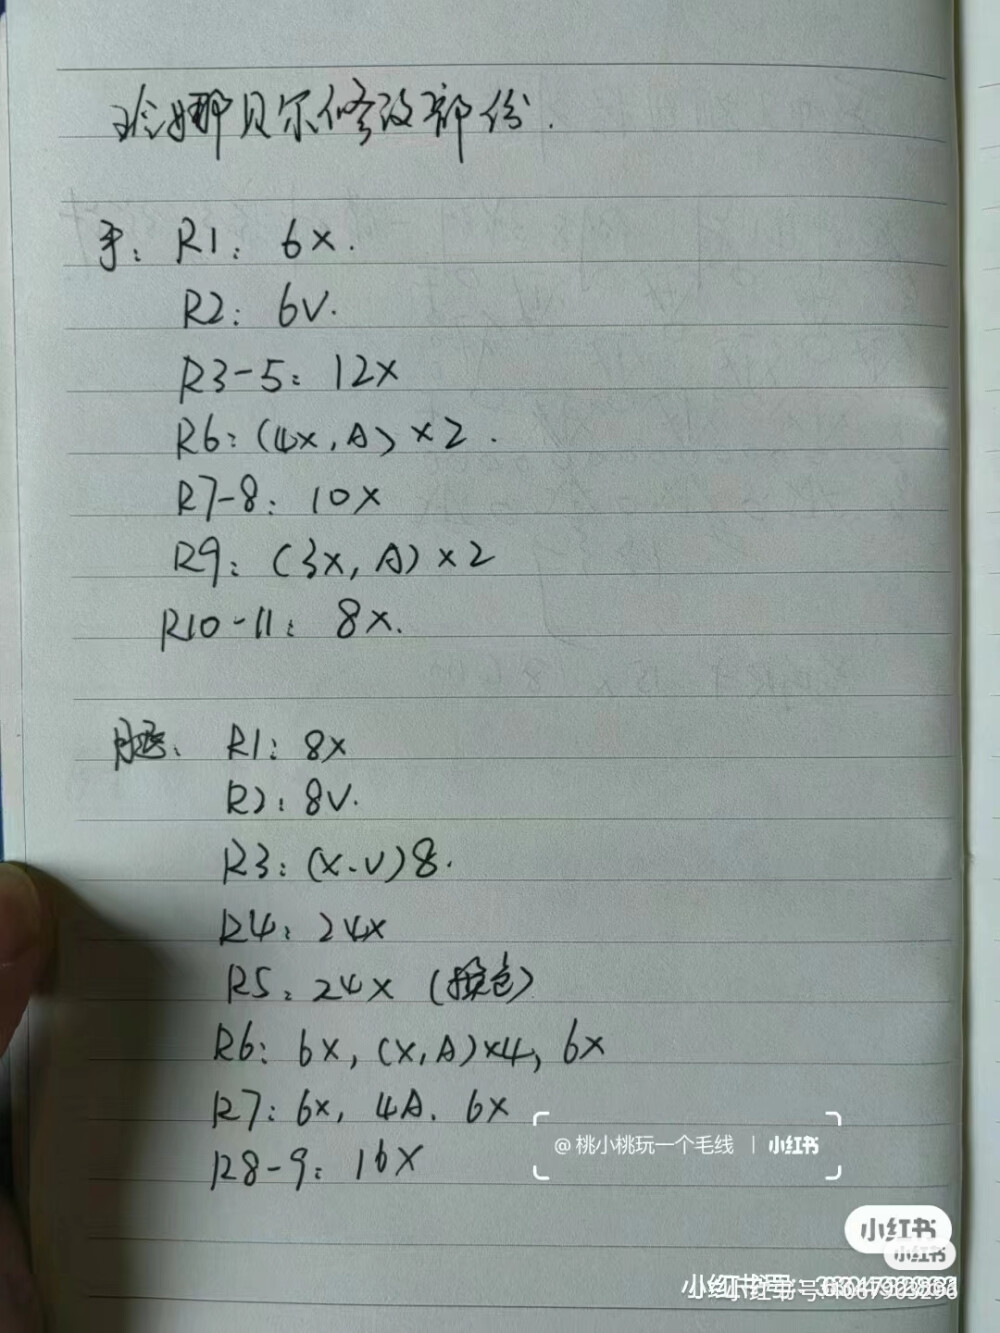 玲娜贝尔修改部份.
手: R1: 6x.
R2: 6V.
R3-5: 12x
R6: (4x, A) ×2.
R7-8: 10x
R9: (3x, A) ×2
R10-11: 8x.
腿: R1: 8x
R2: 8V.
R3: (x.V)8.
R4: 24x
R5: 24x (换色)
R6: 6x, (x, A)×4, 6x
R7: 6x, 4A. 6x
R8-9: 16x
@桃小桃玩一个毛线 | 小红书
小红书
小红书
小红书号: